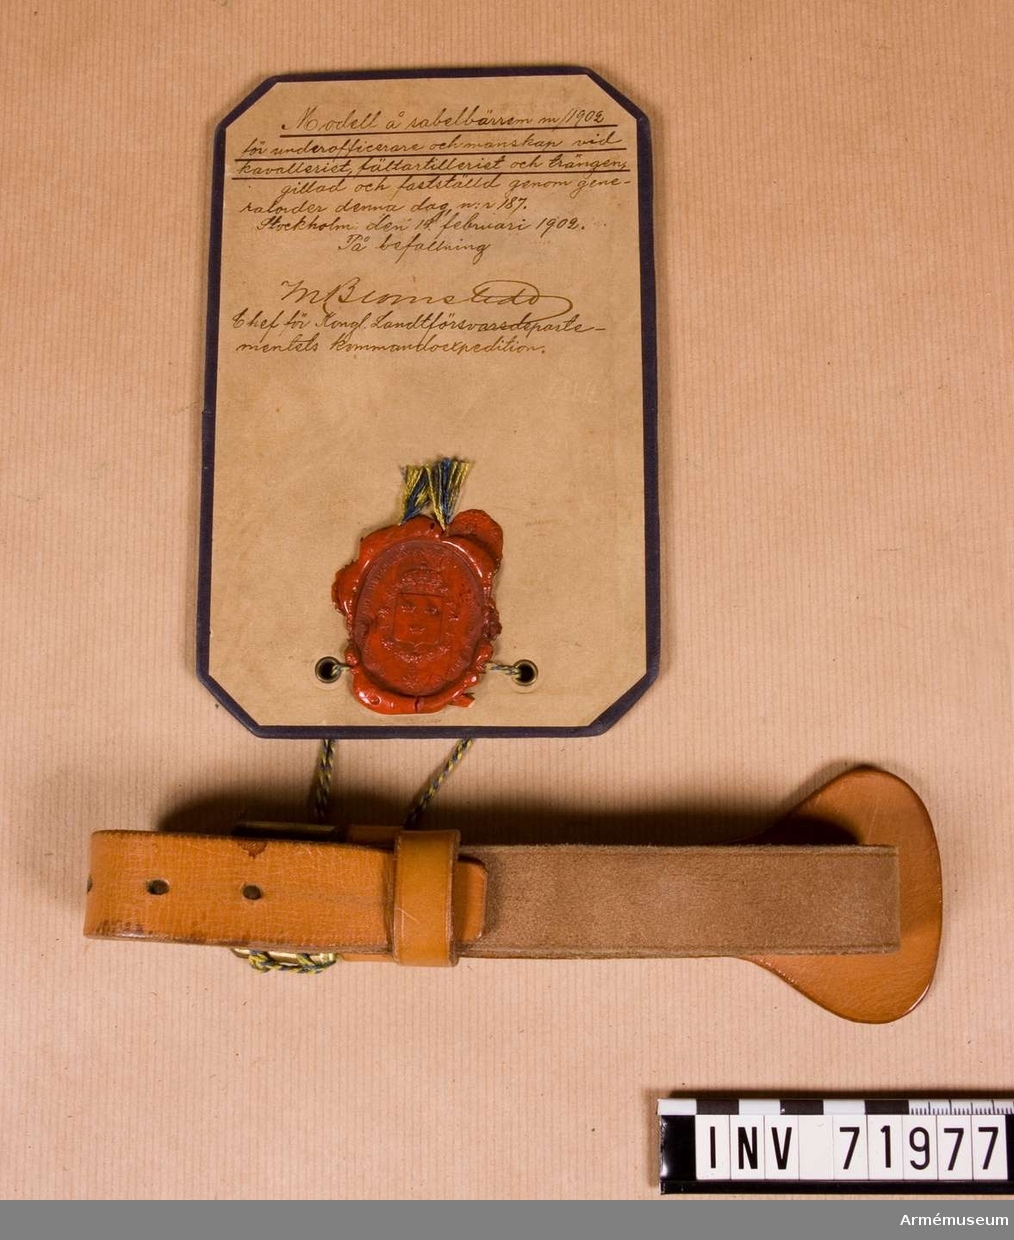 Modell å sabelbärrem m/1902
för underofficerare och manskap vid
kavalleriet, fältartilleriet och trängen,
gillad och fastställd genom gene-
ralorder denna dag, n:r 187.
Stockholm den 14 februari 1902.
På befallning
M Blomstedt
Chef för Kongl. Landtförsvarsdeparte-
mentets kommandoexpedition.
INV 71977
Armémuseum